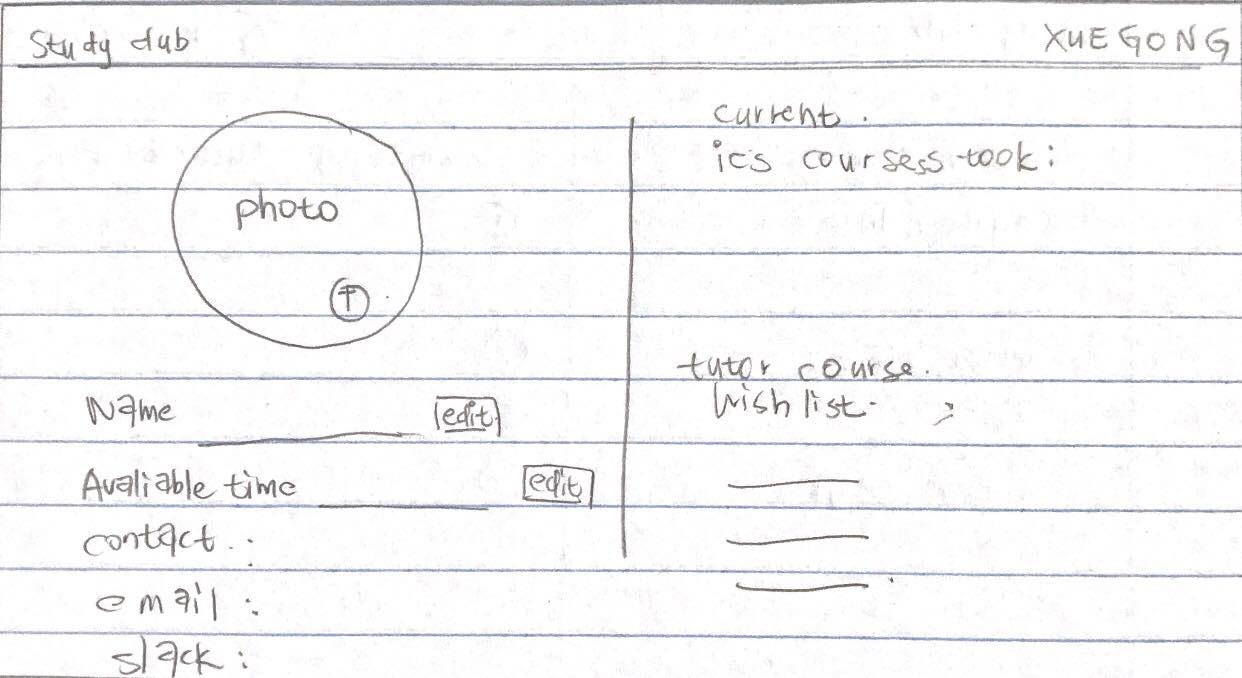 Study club
XUE GONG
photo
Name edit
Avaliable time edit
contact :
email :
slack :
current.
ics coursess took :
tutor course.
Wish list.